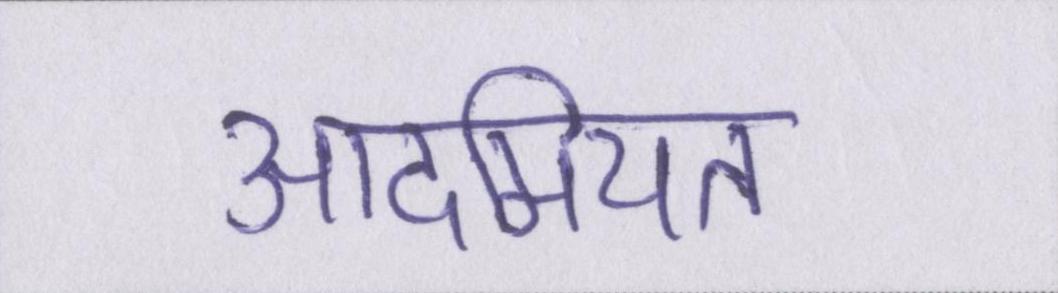 आदमियत